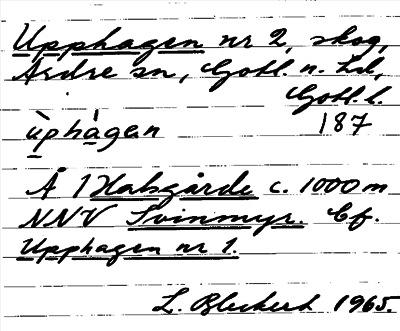 Upphagen nr 2, skog,
Ardre sn, Gotl. n. hd,
Gotl. l.
ùphàgen 187
Å 1 Halsgårde c. 1000 m
NNV Svinmyr. Cf.
Upphagen nr 1.
L. 1965.